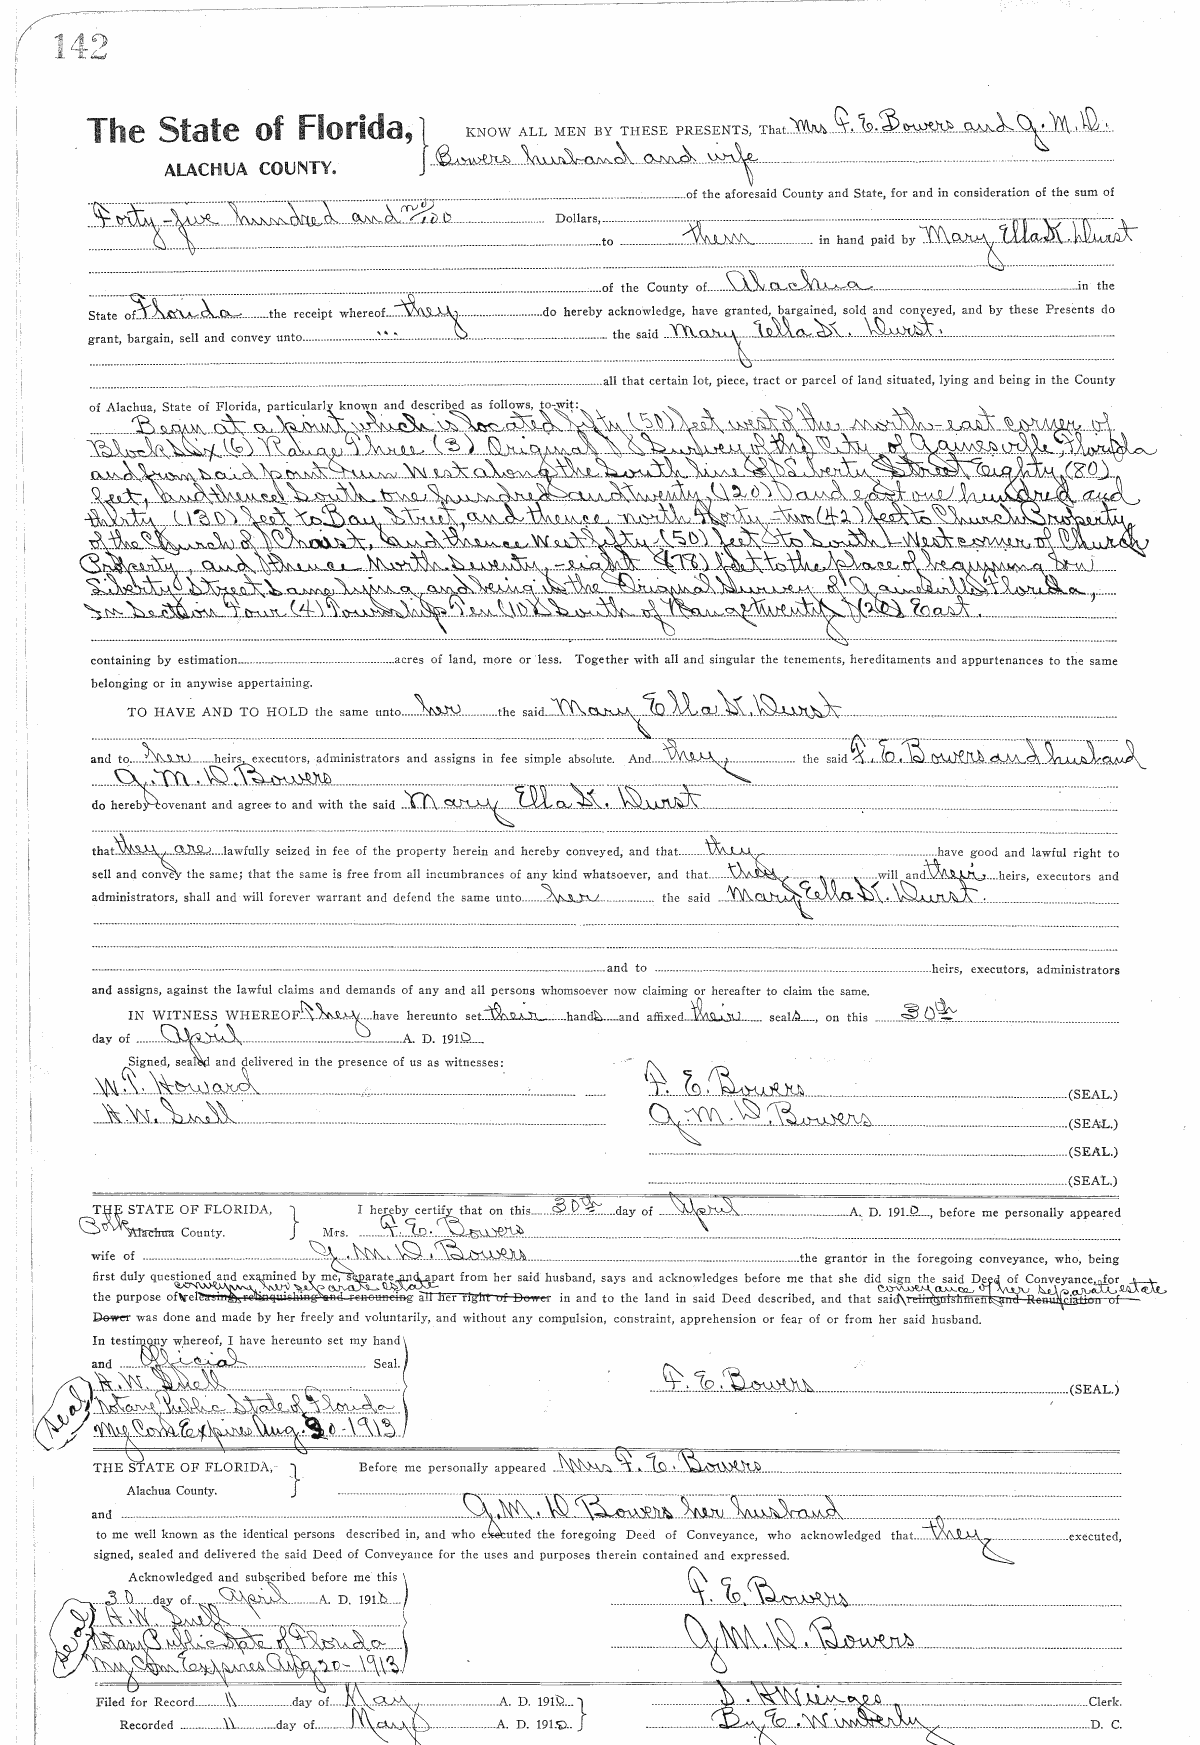 142
The State of Florida,
ALACHUA COUNTY.
KNOW ALL MEN BY THESE PRESENTS, That Mrs F. E. Bowers and G. M. D.
Bowers husband and wife
of the aforesaid County and State, for and in consideration of the sum of
Forty-five hundred and no/100 Dollars,
to them in hand paid by Mary Ella K. Durst
of the County of Alachua in the
State of Florida the receipt whereof they do hereby acknowledge, have granted, bargained, sold and conveyed, and by these Presents do
grant, bargain, sell and convey unto ... the said Mary Ella K. Durst.
all that certain lot, piece, tract or parcel of land situated, lying and being in the County
of Alachua, State of Florida, particularly known and described as follows, to-wit:
Begin at a point which is located fifty (50) feet west of the north-east corner of
Block Six (6) Range Three (3) Original Survey of the City of Gainesville, Florida
and from said point run West along the South line of Liberty Street Eighty (80)
feet, and thence South one hundred and twenty (120) and east one hundred and
thirty (130) feet to Bay Street, and thence north Forty-two (42) feet to Church Property
of the Church of Christ, and thence West fifty (50) feet to South-West corner of Church
Property, and thence North Seventy-eight (78) feet to the place of beginning on
Liberty Street same lying and being in the Original Survey of Gainesville Florida,
In Section Four (4) Township Ten (10) South of Range twenty (20) East.
containing by estimation acres of land, more or less. Together with all and singular the tenements, hereditaments and appurtenances to the same
belonging or in anywise appertaining.
TO HAVE AND TO HOLD the same unto her the said Mary Ella K. Durst
and to her heirs, executors, administrators and assigns in fee simple absolute. And they, the said F. E. Bowers and husband
G. M. D. Bowers
do hereby covenant and agree to and with the said Mary Ella K. Durst
that they are lawfully seized in fee of the property herein and hereby conveyed, and that they have good and lawful right to
sell and convey the same; that the same is free from all incumbrances of any kind whatsoever, and that they will and their heirs, executors and
administrators, shall and will forever warrant and defend the same unto her the said Mary Ella K. Durst.
and to heirs, executors, administrators
and assigns, against the lawful claims and demands of any and all persons whomsoever now claiming or hereafter to claim the same.
IN WITNESS WHEREOF They have hereunto set their hands and affixed their seals, on this 30th
day of April A. D. 1910
Signed, sealed and delivered in the presence of us as witnesses:
W. T. Howard F. E. Bowers (SEAL.)
H. W. Snell G. M. D. Bowers (SEAL.)
(SEAL.)
(SEAL.)
THE STATE OF FLORIDA, I hereby certify that on this 30th day of April A. D. 1910, before me personally appeared
Polk Alachua County. Mrs. F. E. Bowers
wife of G. M. D. Bowers the grantor in the foregoing conveyance, who, being
first duly questioned and examined by me, separate and apart from her said husband, says and acknowledges before me that she did sign the said Deed of Conveyance, for
conveying her separate estate conveyance of her separate estate
the purpose of releasing, relinquishing and renouncing all her right of Dower in and to the land in said Deed described, and that said relinquishment and Renunciation of
Dower was done and made by her freely and voluntarily, and without any compulsion, constraint, apprehension or fear of or from her said husband.
In testimony whereof, I have hereunto set my hand
and Official Seal.
H. W. Snell F. E. Bowers (SEAL.)
seal Notary Public State of Florida
My Com Expires Aug. 20-1913
THE STATE OF FLORIDA, Before me personally appeared Mrs F. E. Bowers
Alachua County.
and G. M. D Bowers her husband
to me well known as the identical persons described in, and who executed the foregoing Deed of Conveyance, who acknowledged that they executed,
signed, sealed and delivered the said Deed of Conveyance for the uses and purposes therein contained and expressed.
Acknowledged and subscribed before me this
30 day of April A. D. 1910 F. E. Bowers
H. W. Snell
seal Notary Public State of Florida G M. D. Bowers
My Com Expires Aug 20-1913
Filed for Record 11 day of May A. D. 1910 S. H Wienges Clerk.
Recorded 11 day of May A. D. 1910 By E. Wimberly D. C.